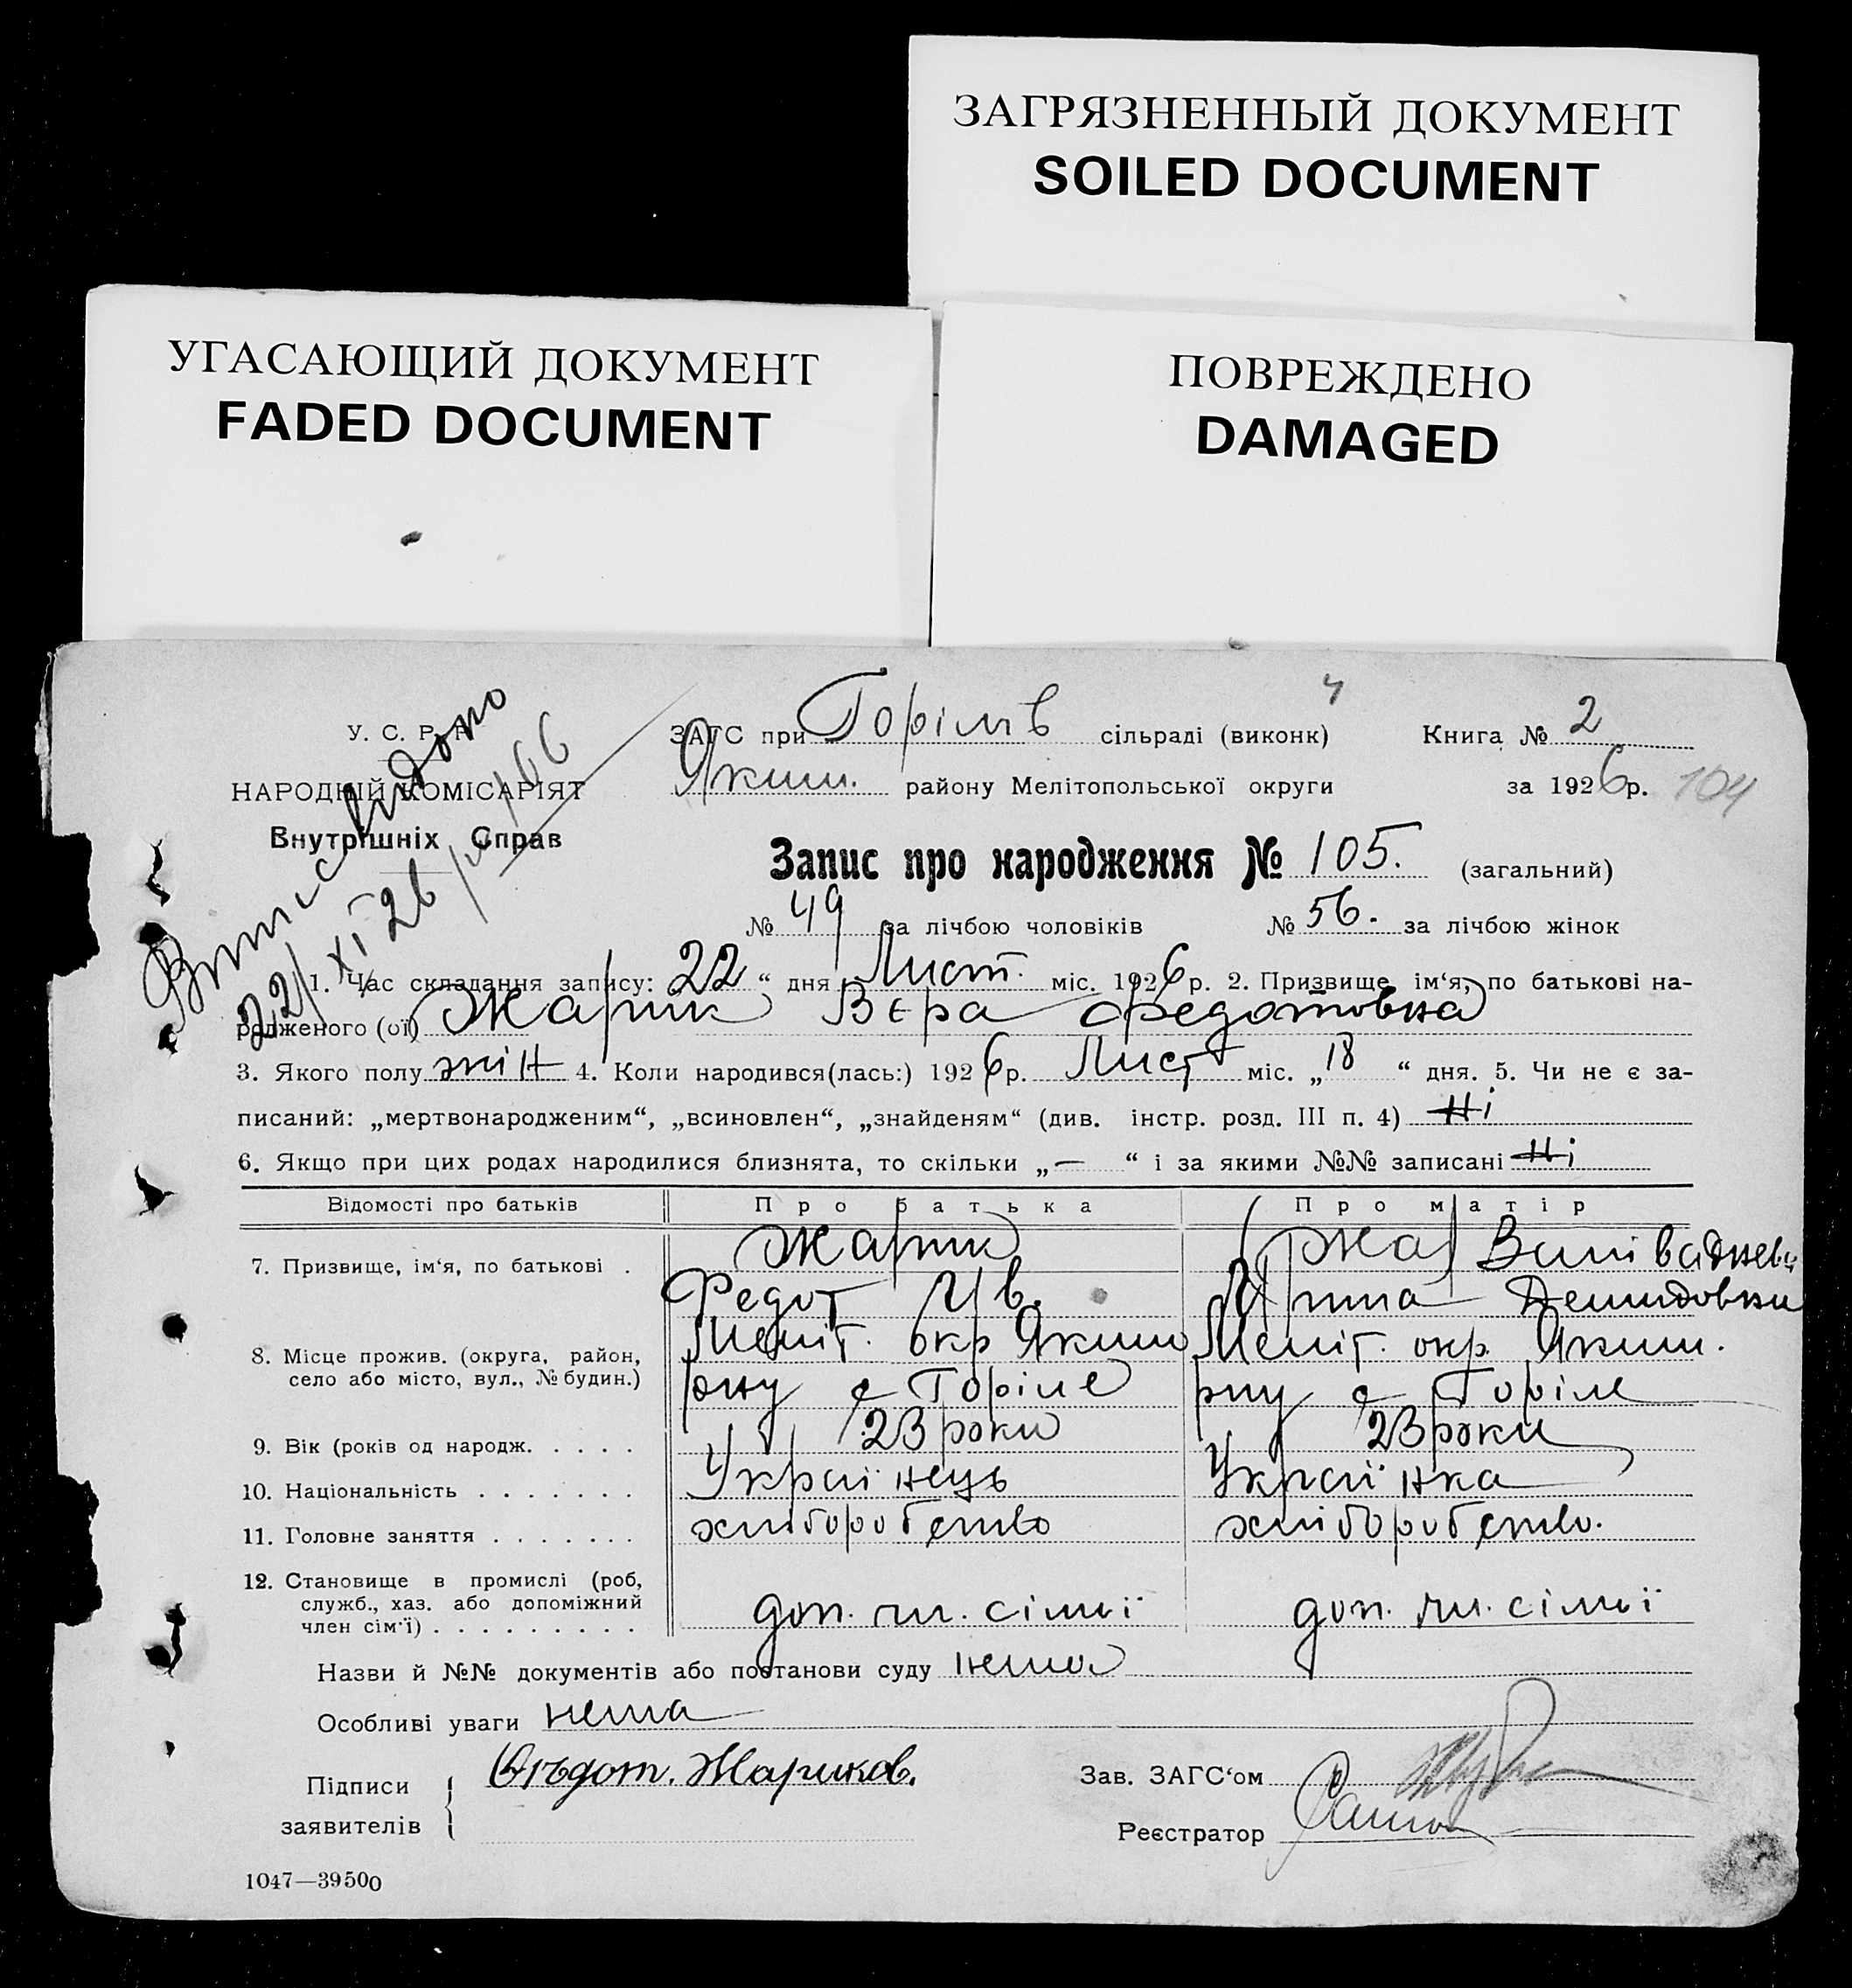 ЗАГРЯЗНЕННЫЙ ДОКУМЕНТ
SOILED DOCUMENT
УГАСАЮЩИЙ ДОКУМЕНТ
FADED DOCUMENT
ПОВРЕЖДЕНО
DAMAGED
У. С. Р. Р.
НАРОДНІЙ КОМІСАРІЯТ
Внутрішніх Справ
22/XI 26
ЗАГС при Горілів сільраді (виконк) Книга № 2
Яким. району Мелітопольської округи за 1926 р. 104
Запис про народження № 105. (загальний)
№ 49 за лічбою чоловіків № 56. за лічбою жінок
1. Час складання запису: 22 “ дня Лист. міс. 1926 р. 2. Призвище, ім‘я, по батькові на-
родженого (ої) Жарик Вєра Федотовна
3. Якого полу жін 4. Коли народився(лась:) 1926 р. Лист міс. „ 18 “ дня. 5. Чи не є за-
писаний: „мертвонародженим“, „всиновлен“, „знайденям“ (див. інстр. розд. III п. 4) Ні
6. Якщо при цих родах народилися близнята, то скільки „ — “ і за якими №№ записані Ні
Відомості про батьків Про батька Про матір
7. Призвище, ім‘я, по батькові . Жарик
Федот Ів. Демидовни
8. Місце прожив. (округа, район, Меліт. окр Яким Меліт. окр. Яким.
село або місто, вул., № будин.) рну с Горіле рну с Горіле
9. Вік (років од народж. . . . . 23 роки 23 роки
10. Національність . . . . . . . Українець Українка
11. Головне заняття . . . . . . . хліборобство хліборобство.
12. Становище в промислі (роб,
служб., хаз. або допоміжний
член сім‘ї) . . . . . . . . . доп. чл. сімьї доп. чл. сімьї
Назви й №№ документів або постанови суду нема
Особливі уваги нема
Підписи
заявителів Жариков.
Зав. ЗАГС‘ом
Реєстратор
1047—39500